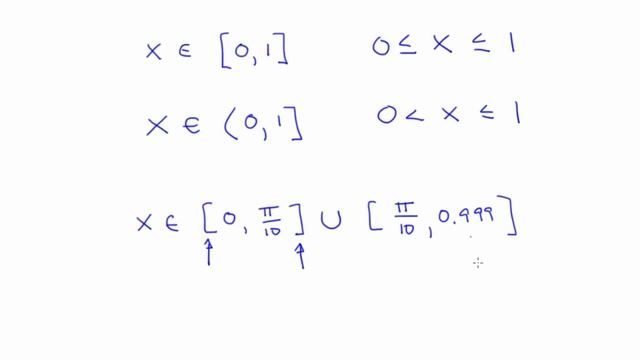 x ∈ [0, 1] 0 ≤ x ≤ 1
x ∈ (0, 1] 0 < x ≤ 1
x ∈ [0, π/10] ∪ [π/10, 0.999]